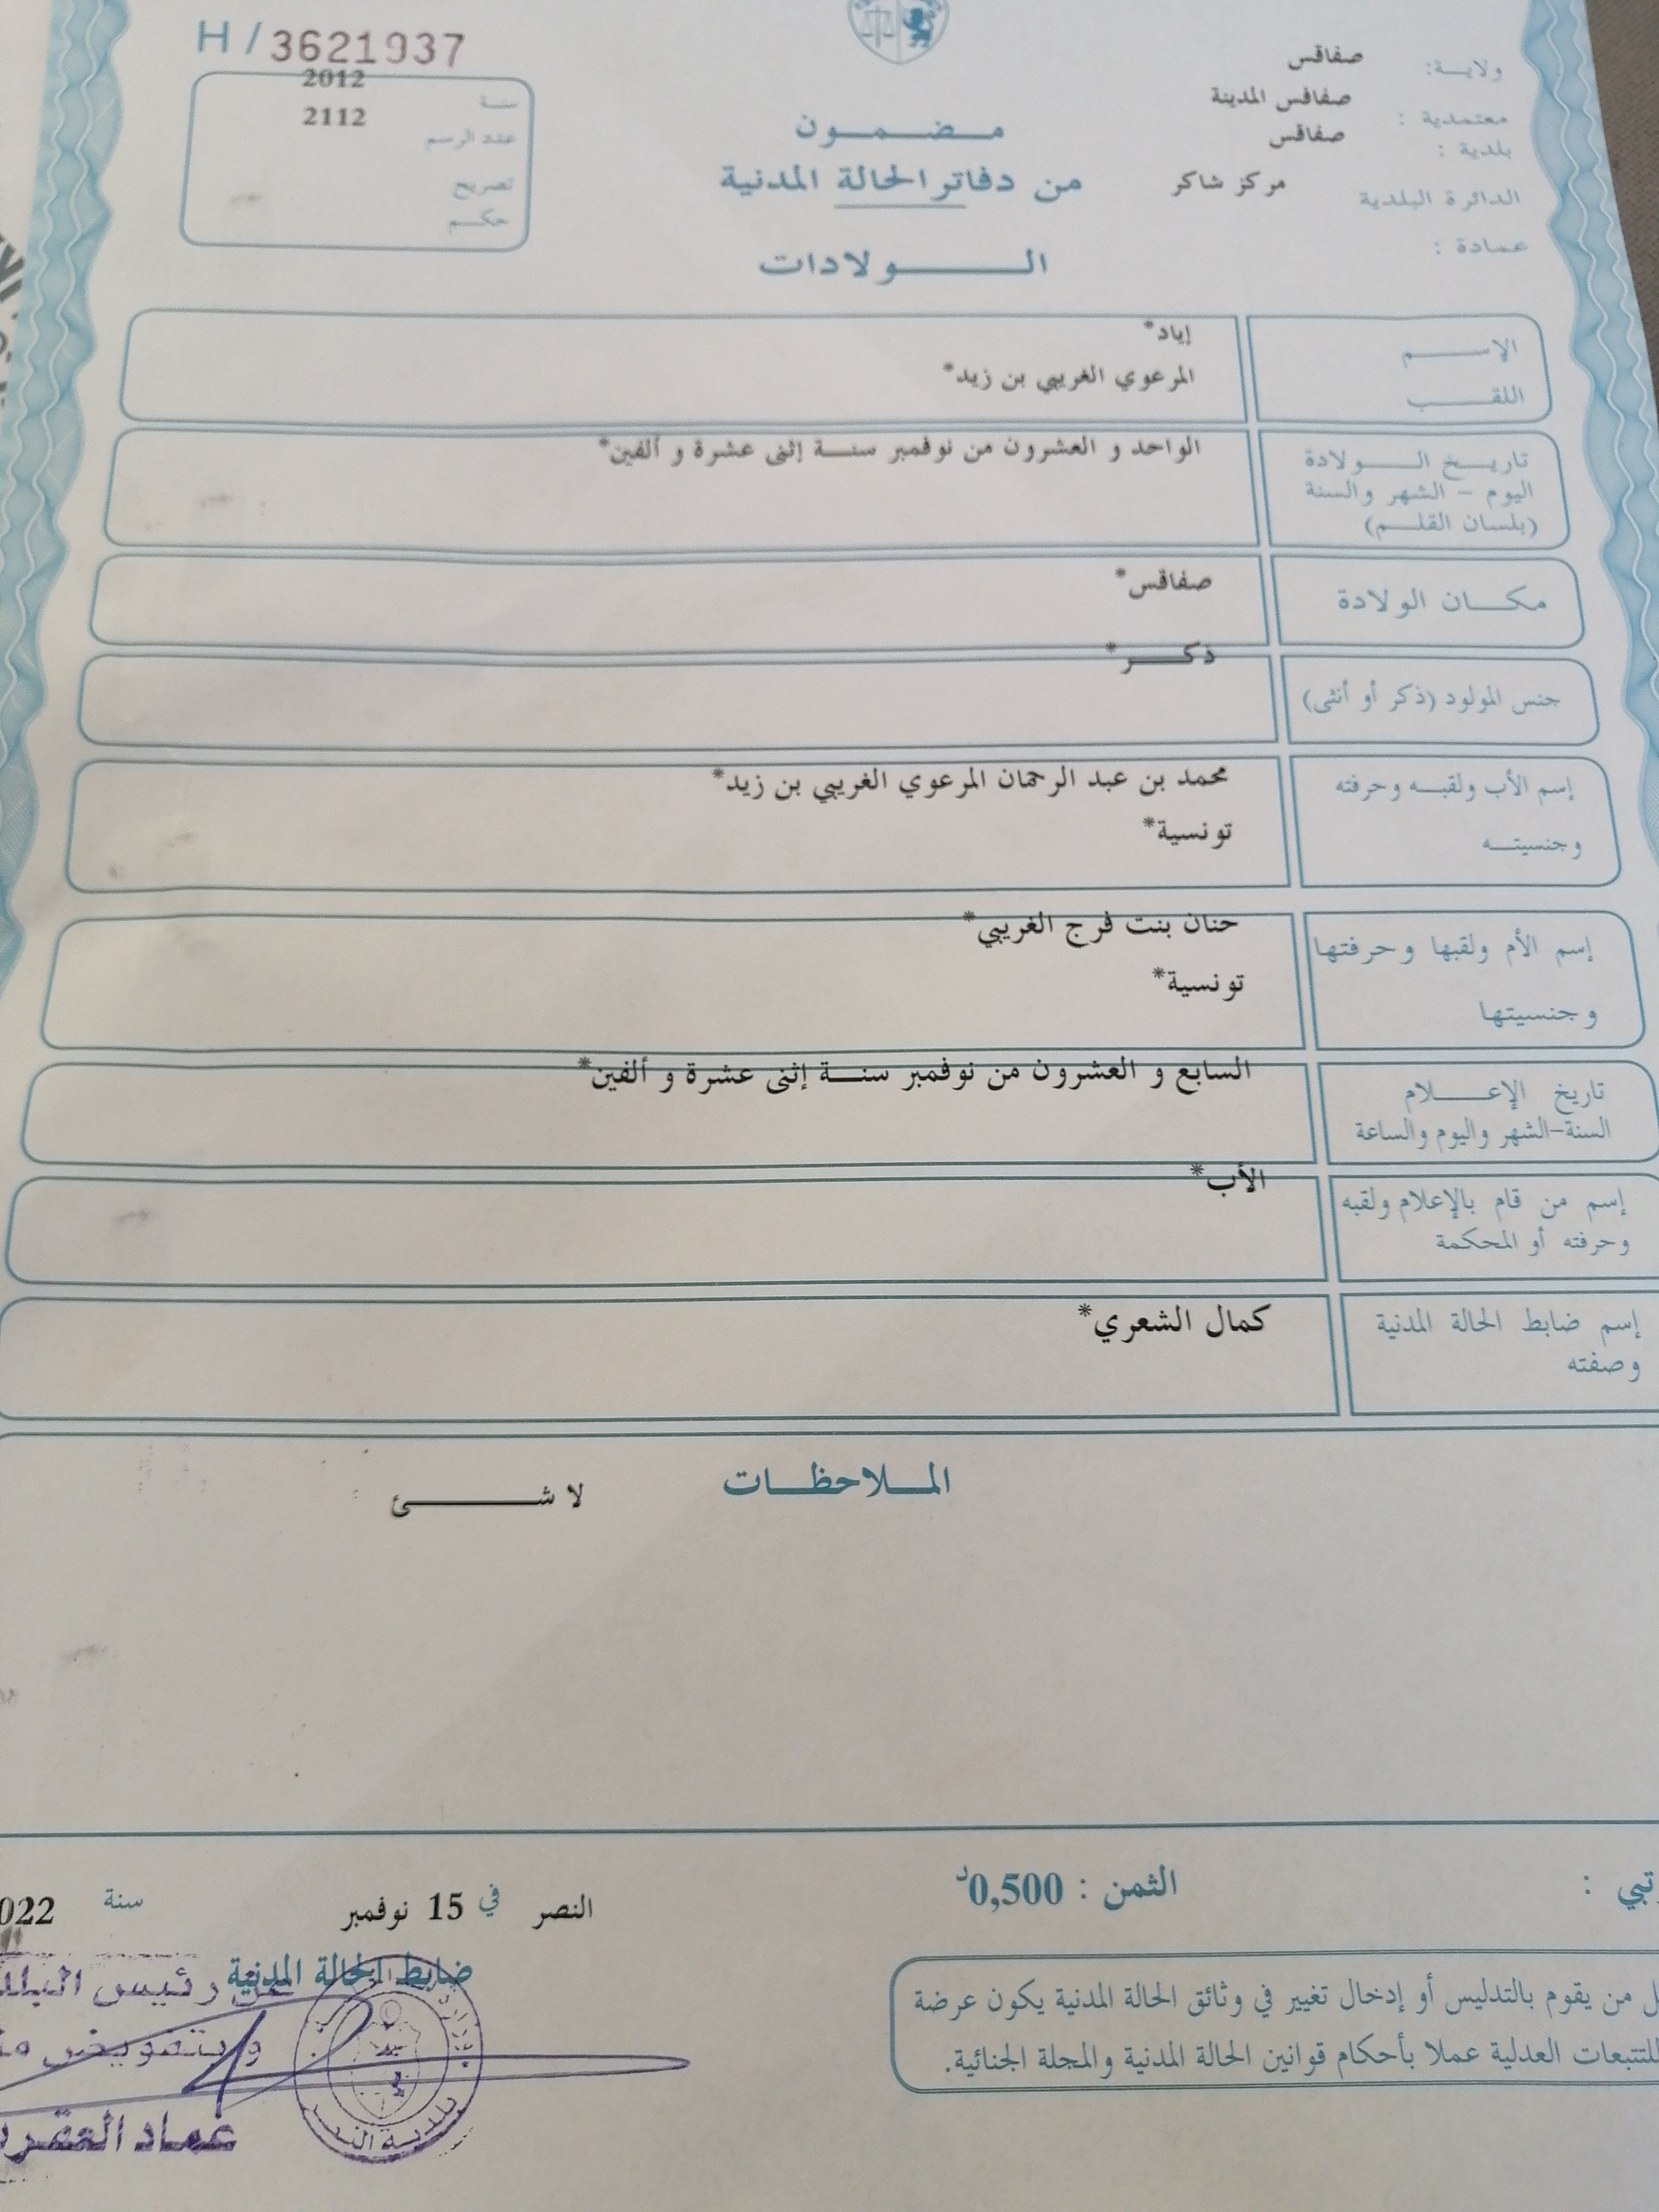 H / 3621937
سنة 2012
عدد الرسم 2112
تصريح
حكم
ولاية: صفاقس
معتمدية : صفاقس المدينة
بلدية : صفاقس
الدائرة البلدية مركز شاكر
عمادة :
مضمون
من دفاتر الحالة المدنية
الولادات
الإسم إياد*
اللقب المرعوي الغريبي بن زيد*
تاريخ الولادة الواحد و العشرون من نوفمبر سنة إثنى عشرة و ألفين*
اليوم - الشهر والسنة
(بلسان القلم)
مكان الولادة صفاقس*
جنس المولود (ذكر أو أنثى) ذكر*
إسم الأب ولقبه وحرفته محمد بن عبد الرحمان المرعوي الغريبي بن زيد*
وجنسيته تونسية*
إسم الأم ولقبها وحرفتها حنان بنت فرج الغريبي*
وجنسيتها تونسية*
تاريخ الإعلام السابع و العشرون من نوفمبر سنة إثنى عشرة و ألفين*
السنة-الشهر واليوم والساعة
إسم من قام بالإعلام ولقبه الأب*
وحرفته أو المحكمة
إسم ضابط الحالة المدنية كمال الشعري*
وصفته
الملاحظات
لا شئ
الثمن : 0,500د
النصر في 15 نوفمبر سنة 022
ضابط الحالة المدنية
من يقوم بالتدليس أو إدخال تغيير في وثائق الحالة المدنية يكون عرضة
للتتبعات العدلية عملا بأحكام قوانين الحالة المدنية والمجلة الجنائية.
عن رئيس البلد
و بتفويض
عماد
بلدية النصر